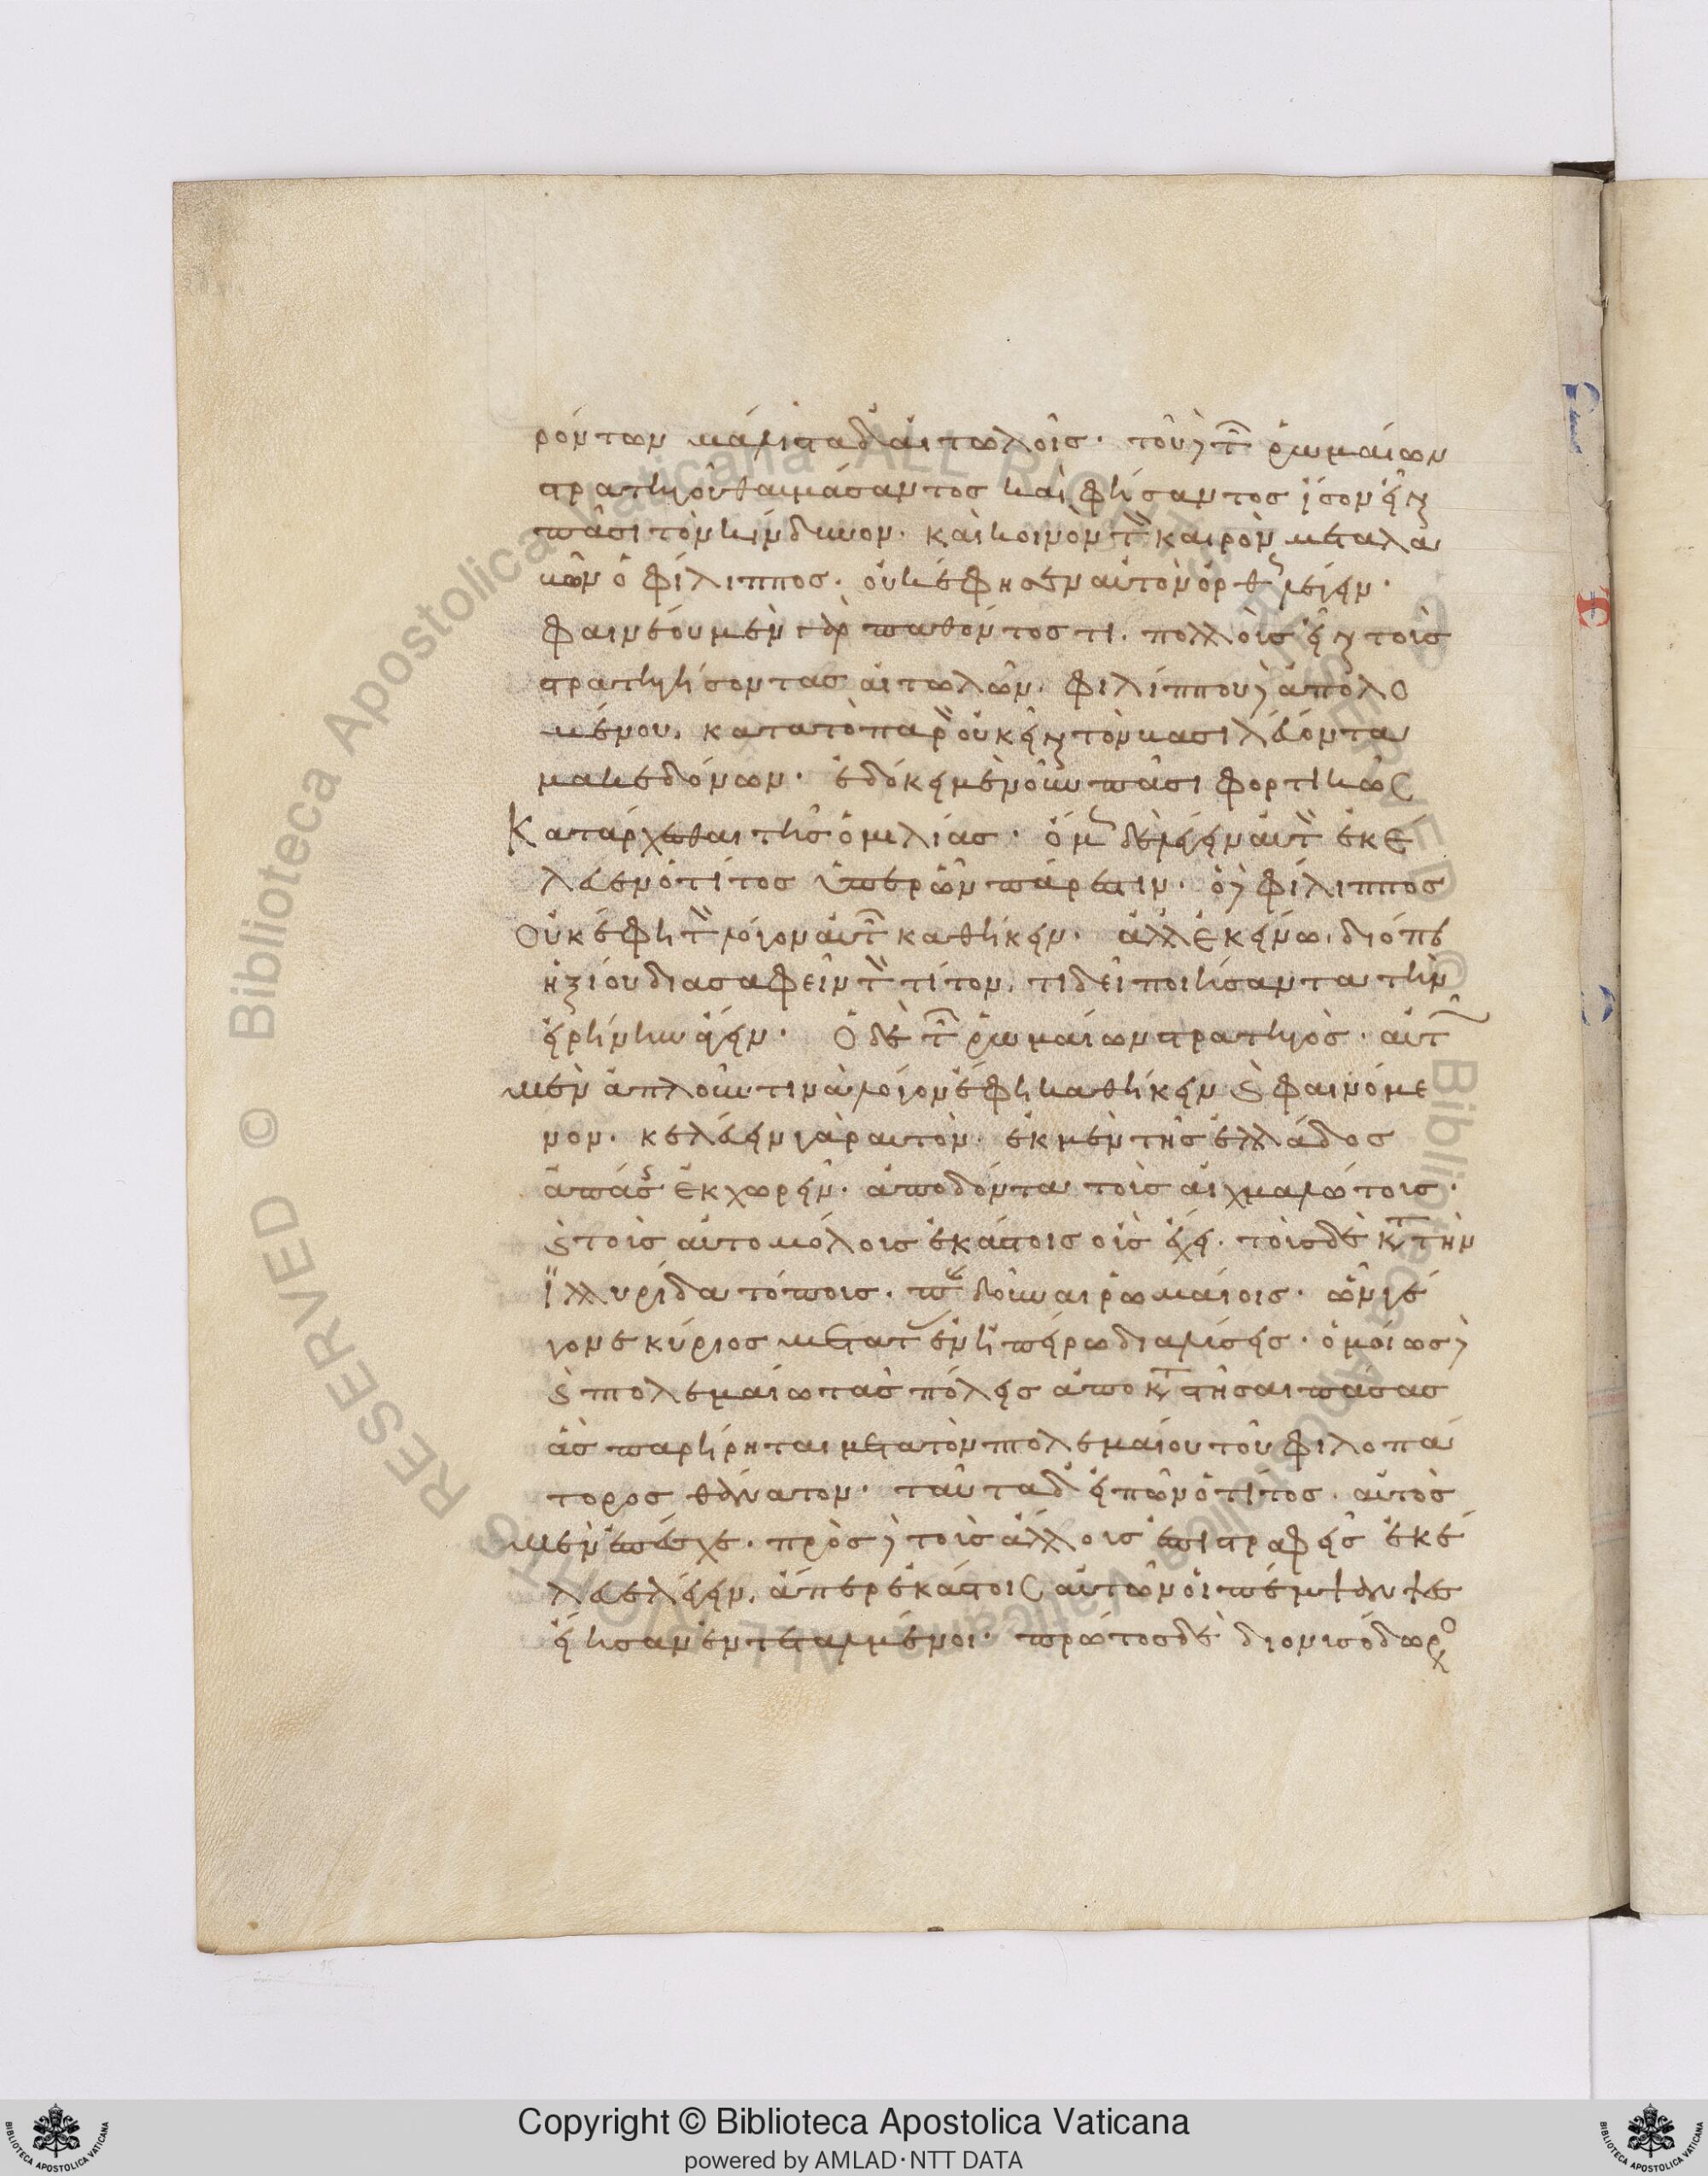 ρόντων μάλιστα δ' αἰτωλοῖς· τοῦ δὲ τῶν ῥωμαίων
στρατηγοῦ θαυμάσαντος καὶ φήσαντος ἴσον εἶναι
πᾶσι τὸν κίνδυνον· καὶ κοινὸν τὸν καιρὸν μεταλα
βὼν ὁ φίλιππος· οὐκ ἔφησεν αὐτὸν ὀρθῶς λέγειν·
φαινέου μὲν γὰρ παθόντος τι· πολλοὺς εἶναι τοὺς
στρατηγήσοντας αἰτωλῶν· φιλίππου δ' ἀπολο
μένου, κατὰ τὸ παρὸν οὐκ εἶναι τὸν βασιλεύοντα
μακεδόνων· ἐδόκει μὲν οὖν πᾶσι φορτικῶς
κατάρχεσθαι τῆς ὁμιλίας· ὅμως δὲ λέγειν αὐτὸν ἐκέ
λευεν ὁ τίτος ὑπὲρ ὧν πάρεστιν· ὁ δὲ φίλιππος
οὐκ ἔφη τὸν λόγον αὐτῶ καθήκειν· ἀλλ' ἐκείνω· διόπερ
ἠξίου διασαφεῖν τὸν τίτον, τί δεῖ ποιήσαντα τὴν
εἰρήνην ἄγειν· ὁ δὲ τῶν ῥωμαίων στρατηγὸς· αὐτῶ
μὲν ἁπλοῦν τινὰ λόγον ἔφη καθήκειν καὶ φαινόμε
νον· κελεύειν γὰρ αὐτὸν· ἐκ μὲν τῆς ἑλλάδος
ἁπάσης ἐκχωρεῖν· ἀποδόντα τοὺς αἰχμαλώτους·
καὶ τοὺς αὐτομόλους ἑκάστοις οὓς ἔχει· τοὺς δὲ κατὰ τὴν
ἰλλυρίδα τόπους· παραδοῦναι ῥωμαίοις· ὧν γέ
γονε κύριος μετὰ τὰς ἐν ἠπείρω διαλύσεις· ὁμοίως δὲ
καὶ πτολεμαίω τὰς πόλεις ἀποκαταστῆσαι πάσας
ἃς παρήρηται μετὰ τὸν πτολεμαίου τοῦ φιλοπά
τορος θάνατον· ταῦτα δ' εἰπὼν ὁ τίτος· αὐτὸς
μὲν ἐπέσχε· πρὸς δὲ τοὺς ἄλλους ἐπιστραφεὶς ἐκέ
λευε λέγειν, ἅπερ ἑκάστοις αὐτῶν οἱ πέμψαντες
εἴησαν ἐντεταλμένοι· πρῶτος δὲ διονυσόδωρος